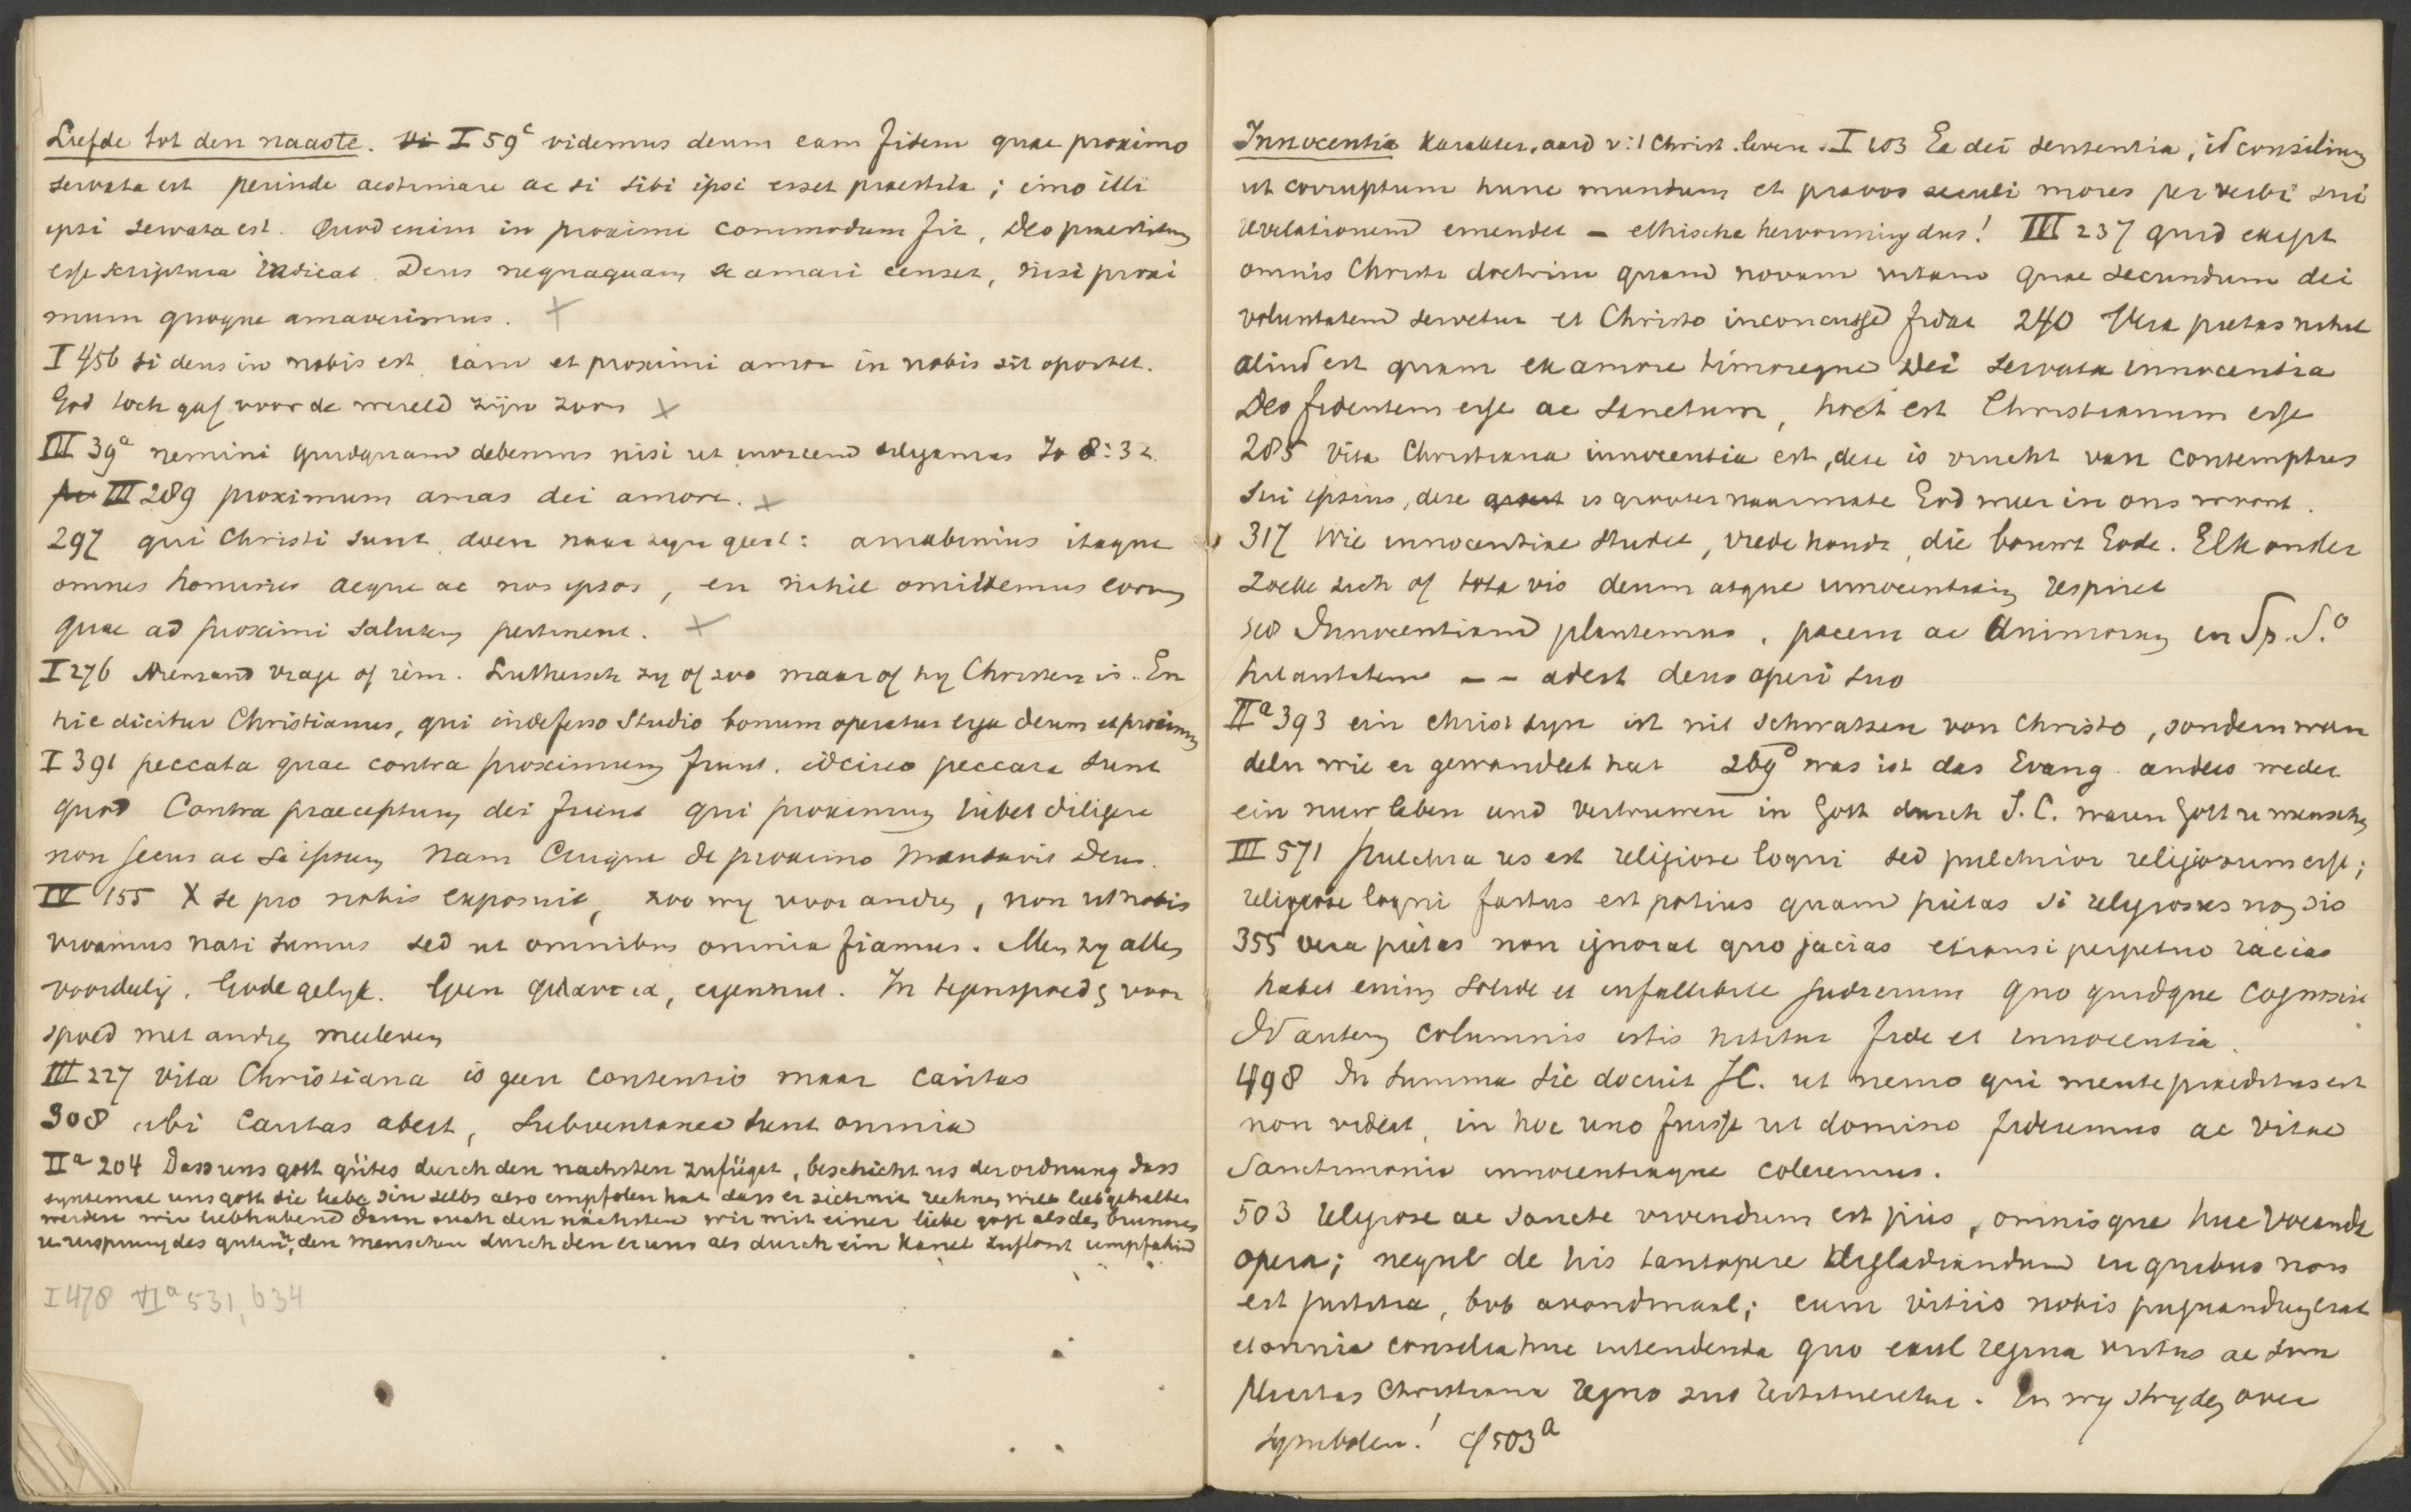 Liefde tot den naaste. I 59c videmus deum eam fidem quae proximo
servata est perinde aestimare ac si sibi ipsi esset praestita; imo illi
ipsi servata est. Quod enim in proximi commodum fit, Deo praestitum
esse scriptura indicat. Deus nequaquam se amari censet, nisi proxi
mum quoque amaverimus. X
I 456 si deus in nobis est, iam et proximi amor in nobis sit oportet.
God toch gaf voor de wereld zijn zoon X
III 39a nemini quidquam debemus nisi ut invicem diligamus Jo 8:32.
III 289 proximum amas dei amore. X
297 qui Christi sunt, doen naar zyn geest: amabimus itaque
omnes homines aeque ac nos ipsos, en nihil omittemus eorum
quae ad proximi salutem pertinent. X
I 276 Niemand vrage of iem. Luthersch zy of zoo maar of hy Christen is. En
hic dicitur Christianus, qui indefesso studio bonum operatur erga deum et proximum
I 391 peccata quae contra proximum fiunt. idcirco peccata sunt
quod contra praeceptum dei fiunt qui proximum iubet diligere
non secus ac se ipsum Nam Cuique de proximo mandavit Deus.
IV 155 X se pro nobis exposuit, zoo wy voor andren, non ut nobis
vivamus nati sumus sed ut omnibus omnia fiamus. Men zy allen
voordeelig. Gode gelyk. Geen φιλαυτια, eigennut. In tegenspoed & voor
spoed met andren meeleven
III 227 vita Christiana is geen contentio maar caritas
308 ubi Caritas abest, subventanea sunt omnia
IIa 204 Dass uns gott gütes durch den nachsten zufüget, beschicht us der ordnung dass
syntemal uns gott die liebe sin selbs also empfolen hat dass er sich nit rechnen will lieb gehalten
werden wir liebhabend dann ouch den nächsten wir mit einer liebe gott als den brunnen
u ursprung des guten, den menschen durch den er uns als durch ein kanel zuflosst empfahend
I 478 VIa 531, 634
Innocentia karakter, aard v. 't Christ. leven. I 103 Ea dei sententia, id consilium
ut corruptum hunc mundum et pravos seculi mores per verbi sui
revelationem emendet – ethische hervorming dus! III 237 quid exigit
omnis Christi doctrina quam novam vitam quae secundum dei
voluntatem servetur et Christo inconcusse fidat 240 Vera pietas nihil
aliud est quam ex amore timoreque Dei servata innocentia
Deo fidentem esse ac sanctum, hoc est Christianum esse
285 vita Christiana innocentia est, deze is vrucht van contemptus
sui ipsius, deze is grooter naarmate God meer in ons woont.
317 Wie innocentiae studet, vrede houdt, die bouwt Gode. Elk onder
zoeke zich of tota vis deum atque innocentiam respiret
318 Innocentiam plantemus, pacem ac animorum in Sp. S.o
hilaritatem – – adest deus operi suo
IIa 393 ein christ syn ist nit schwatzen von Christo, sondern wan
deln wie er gewandlet hat 269 was ist das Evang. anders weder
ein nuw leben und vertruwen in Gott durch J.C. waren Gott u menschen
III 571 Pulchra res est religiose loqui sed pulchrior religiosum esse;
religiose loqui fastus est potius quam pietas si religiosus non sis
355 vera pietas non ignorat quo jacias etiamsi perpetuo iacias
habet enim solide et infallibile judicium quo quidque cognoscit
Id autem columnis istis nititur fide et innocentia.
498 In summa sic docuit JC. ut nemo qui mente praeditus est
non videat, in hoc uno fuisse ut domino fideremus ac vitae
sanctimonia innocentiaque coleremus.
503 religiose ac sancte vivendum est piis, omnisque huc vocanda
opera; neque de his tantopere digladiandum in quibus non
est justitia, bvb avondmaal; cum vitiis nobis pugnandum erat
et omnia consilia huc intendenda quo exul regina virtus ac sua
libertas Christiana regno suo restitueretur. En wy stryden over
symbolen! cf 503a